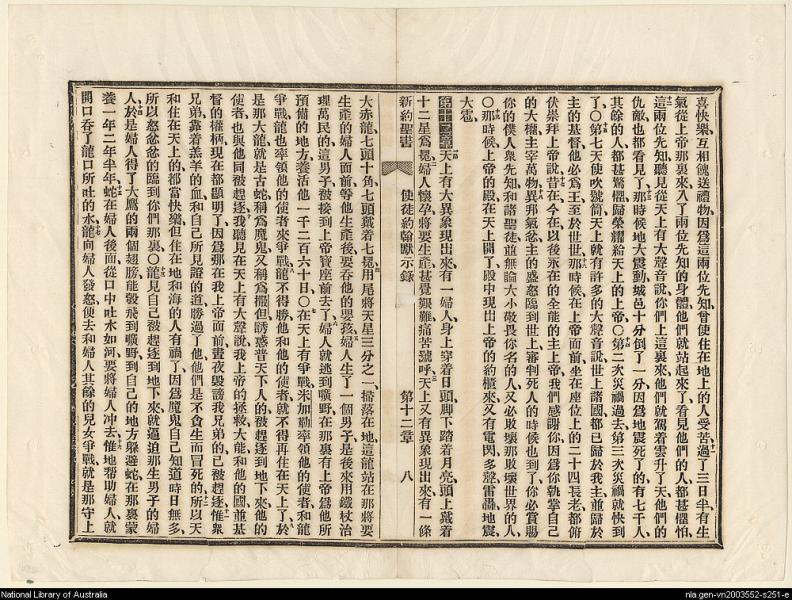 喜快樂、互相餽送禮物、因爲這兩位先知、曾使住在地上的人受苦、過了三日半、有生
氣從上帝那裏來、入了兩位先知的身體、他們就站起來了、看見他們的人、都甚懼怕、
這兩位先知聽見從天上有大聲音說、你們上這裏來、他們就駕着雲升了天、他們的
仇敵也都看見了、那時候地大震動、城邑十分倒了一分、因爲地震死了的、有七千人、
其餘的人、都甚驚懼、歸榮耀給天上的上帝、〇第二次災禍過去、第三次災禍就快到
了、〇第七天使吹號筒、天上就有許多的大聲音說、世上諸國、都已歸於我主、並歸於
主的基督、他必爲王、至於世世、那時候在上帝面前、坐在座位上的二十四長老、都俯
伏崇拜上帝說、昔在今在以後永在的全能的主上帝、我們感謝你、因爲你執掌自己
的大權、主宰萬物、異邦氣忿、主的盛怒臨到世上、審判死人的時候也到了、你必賞賜
你的僕人衆先知和諸聖徒、並無論大小敬畏你名的人、又必敗壞那敗壞世界的人、
〇那時候、上帝的殿在天上開了、殿中現出上帝的約櫃來、又有電閃、多聲、雷轟、地震、
大雹、
第十二章 天上有大異象現出來、有一婦人、身上穿着日頭、脚下踏着月亮、頭上戴着
十二星爲冕、婦人懷孕、將要生產、甚覺艱難痛苦號呼、天上又有異象現出來、有一條
新約聖書 使徒約翰默示錄 第十二章 八
大赤龍、七頭十角、七頭戴着七冕、用尾將天星三分之一、掃落在地、這龍站在那將要
生產的婦人面前、等他生產後、要吞他的嬰孩、婦人生了一個男子、是後來用鐵杖治
理萬民的、這男子被接到上帝寶座前去了、婦人就逃到曠野、在那裏有上帝爲他所
預備的地方、養活他一千二百六十日、〇在天上有爭戰、米加勒率領他的使者和龍
爭戰、龍也率領他的使者來爭戰、龍不得勝、他和他的使者、就不得再住在天上了、於
是那大龍、就是古蛇、稱爲魔鬼、又稱爲撒但、誘惑普天下人的、被趕逐到地下來、他的
使者、也與他同被趕逐、我聽見在天上有大聲說、我上帝的拯救、大能和他的國、並基
督的權柄、現在都顯明了、因爲那在我上帝面前、晝夜毀謗我兄弟的、已被趕逐、惟衆
兄弟、靠着羔羊的血、和自己所見證的道、勝過了他、他們是不貪生而冒死的、所以天
和住在天上的、都當快樂、但住在地和海的人有禍了、因爲魔鬼自己知道時日無多、
所以怒忿忿的臨到你們那裏、〇龍見自己被趕逐到地下來、就逼迫那生男子的婦
人、於是婦人得了大鷹的兩個翅膀、能彀飛到曠野、到自己的地方、躱避蛇、在那裏蒙
養一年二年半年、蛇在婦人後面、從口中吐水如河、要將婦人冲去、惟地帮助婦人、就
開口吞了龍口所吐的水、龍向婦人發怒、便去和婦人其餘的兒女爭戰、就是那守上
National Library of Australia
nla.gen-vn2003552-s251-e